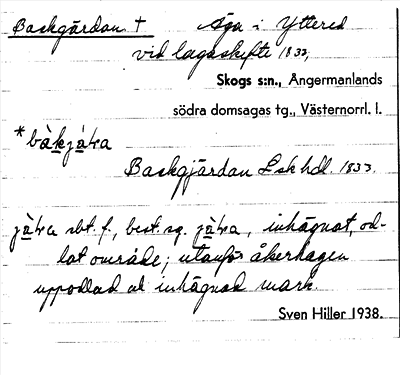 Backgärdan † Äga i Yttered
vid lagaskifte 1833,
Skogs s:n., Ångermanlands
södra domsagas tg., Västernorrl. l.
*bàkjáka
Backgjärdan Lskhdl. 1833.
sbt. f., best. sg. , inhägnat, od-
lat område; utanför åkerhagen
uppodlad al inhägnad mark.
Sven Hiller 1938.